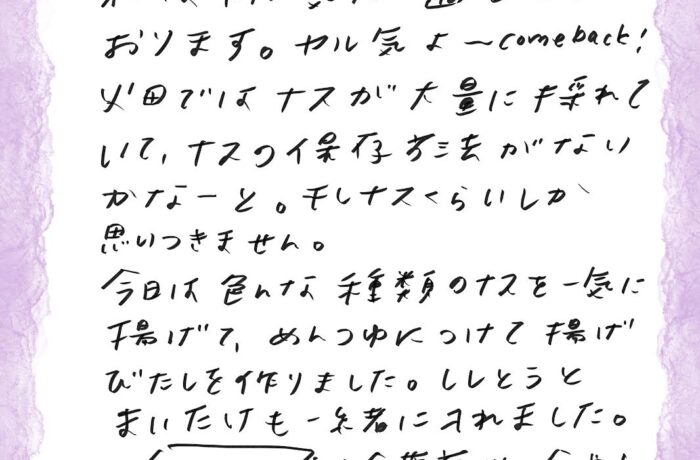 おります。ヤル気よ〜comeback!
畑ではナスが大量に採れて
いて、ナスの保存方法がない
かなーと。干しナスくらいしか
思いつきません。
今日は色んな種類のナスを一気に
揚げて、めんつゆにつけて揚げ
びたしを作りました。ししとうと
まいたけも一緒に入れました。